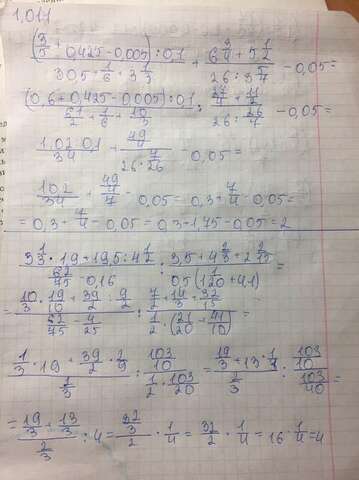 1.011
(3/5 + 0,425 - 0,005) : 0,1 / 30,5 + 1/6 + 3 1/3 + 6 3/4 + 5 1/2 / 26 : 3 5/7 - 0,05 =
(0,6 + 0,425 - 0,005) : 0,1 / 61/2 + 1/6 + 10/3 + 27/4 + 11/2 / 26 : 26/7 - 0,05 =
1,02 : 0,1 / 34 + 49/4 / 26 · 7/26 - 0,05 =
10,2 / 34 + 49/4 / 7 - 0,05 = 0,3 + 7/4 - 0,05 =
= 0,3 + 7/4 - 0,05 = 0,3 - 1,75 - 0,05 = 2
3 1/3 · 1,9 + 19,5 : 4 1/2 / 62/75 - 0,16 : 3,5 + 4 2/3 + 2 2/15 / 0,5 (1 1/20 + 4,1) =
= 10/3 · 19/10 + 39/2 : 9/2 / 62/75 - 4/25 : 7/2 + 14/3 + 32/15 / 1/2 · (21/20 + 41/10) =
1/3 · 19 + 39/2 · 2/9 / 2/3 : 103/10 / 1/2 · 103/20 = 19/3 + 13 · 1/3 / 2/3 : 103/10 / 103/40 =
= 19/3 + 13/3 / 2/3 : 4 = 32/3 / 2 · 1/4 = 32/2 · 1/4 = 16 · 1/4 = 4